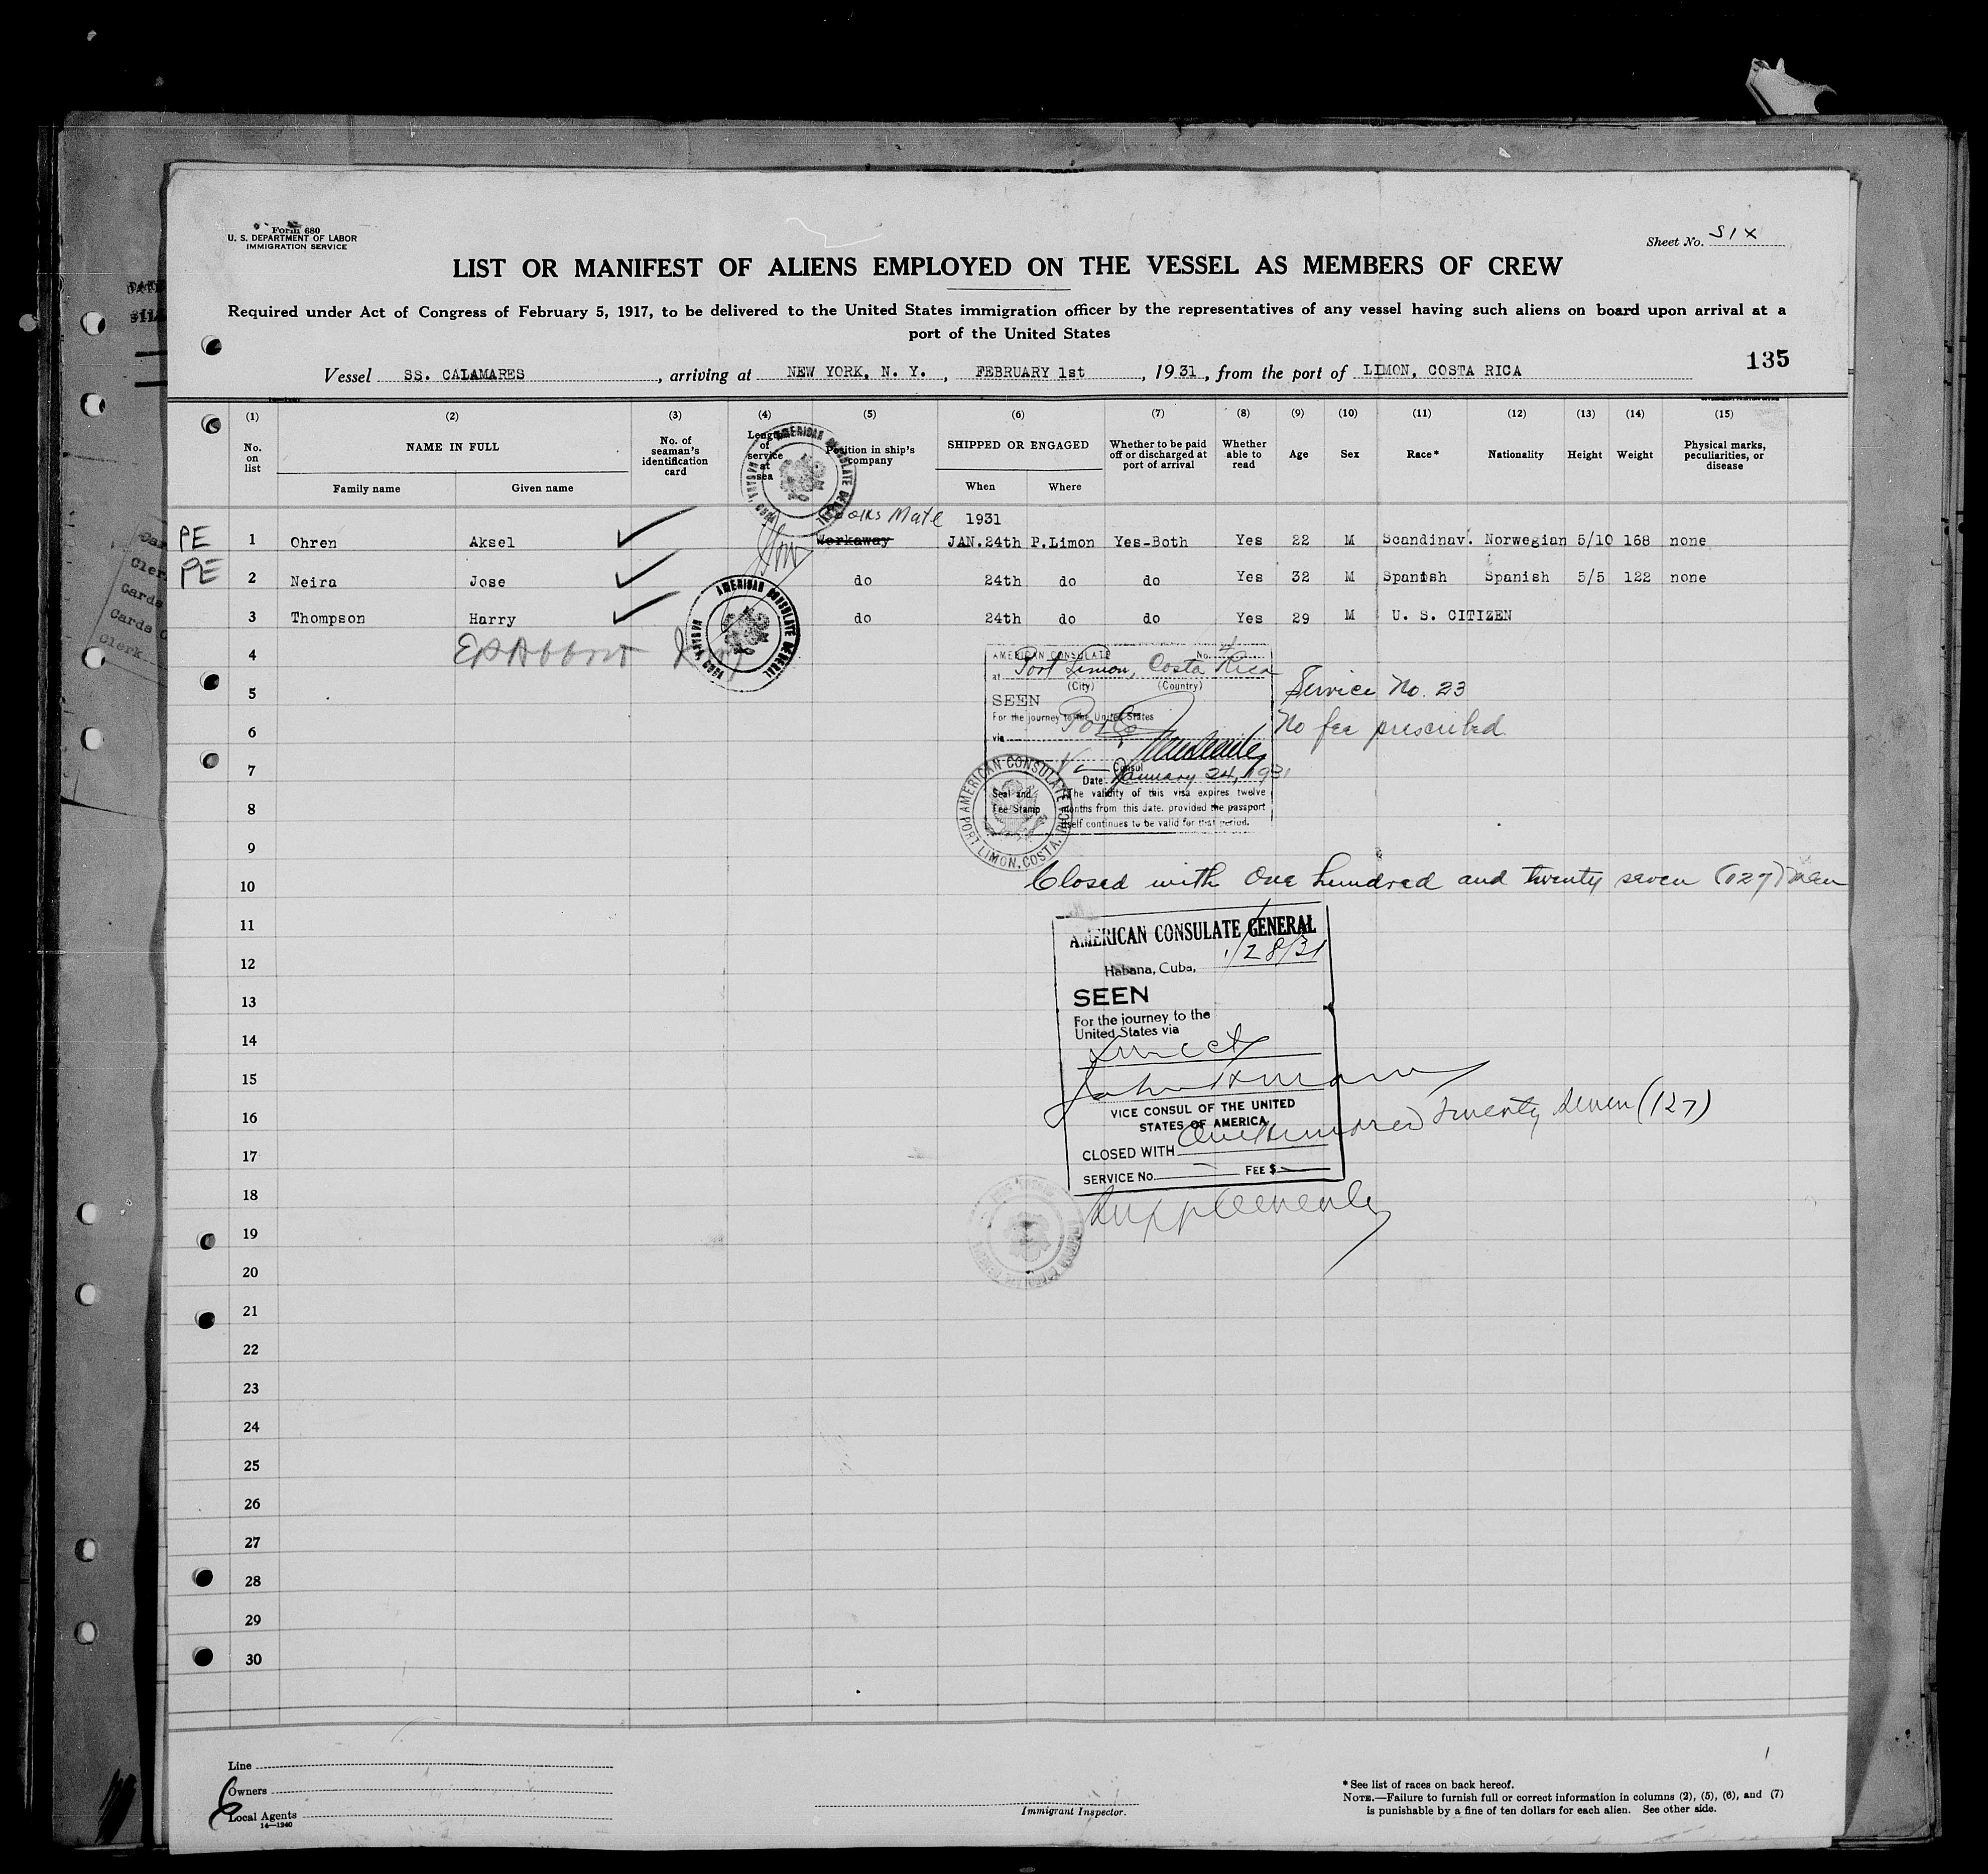 Form 680
U. S. DEPARTMENT OF LABOR
IMMIGRATION SERVICE
Sheet No. SIX
LIST OR MANIFEST OF ALIENS EMPLOYED ON THE VESSEL AS MEMBERS OF CREW
Required under Act of Congress of February 5, 1917, to be delivered to the United States immigration officer by the representatives of any vessel having such aliens on board upon arrival at a
port of the United States
135
Vessel SS. CALAMARES, arriving at NEW YORK, N. Y., FEBRUARY 1st, 1931, from the port of LIMON, COSTA RICA
(1) (2) (3) (4) (5) (6) (7) (8) (9) (10) (11) (12) (13) (14) (15)
No. on list
NAME IN FULL
Family name
Given name
No. of seaman's identification card
Length of service at sea
Position in ship's company
SHIPPED OR ENGAGED
When
Where
Whether to be paid off or discharged at port of arrival
Whether able to read
Age
Sex
Race*
Nationality
Height
Weight
Physical marks, peculiarities, or disease
Mate 1931
PE 1 Ohren Aksel Workaway JAN.24th P.Limon Yes-Both Yes 22 M Scandinav. Norwegian 5/10 168 none
PE 2 Neira Jose do 24th do do Yes 32 M Spanish Spanish 5/5 122 none
3 Thompson Harry do 24th do do Yes 29 M U. S. CITIZEN
4
5
6
7
8
9
10
11
12
13
14
15
16
17
18
19
20
21
22
23
24
25
26
27
28
29
30
AMERICAN CONSULATE No.
at Port Limon, Costa Rica
(City) (Country)
SEEN
For the journey to the United States
via
Consul
Date January 24, 1931
Seal and Fee Stamp
The validity of this visa expires twelve
months from this date, provided the passport
itself continues to be valid for that period.
AMERICAN CONSULATE PORT LIMON, COSTA RICA
Service No. 23
No fee prescribed
Closed with One hundred and twenty seven (127) men
AMERICAN CONSULATE GENERAL
Habana, Cuba, 1/28/31
SEEN
For the journey to the
United States via
VICE CONSUL OF THE UNITED
STATES OF AMERICA
CLOSED WITH One hundred twenty seven (127)
SERVICE No. FEE $
Line
Owners
Local Agents
14—1240
Immigrant Inspector.
* See list of races on back hereof.
NOTE.—Failure to furnish full or correct information in columns (2), (5), (6), and (7)
is punishable by a fine of ten dollars for each alien. See other side.